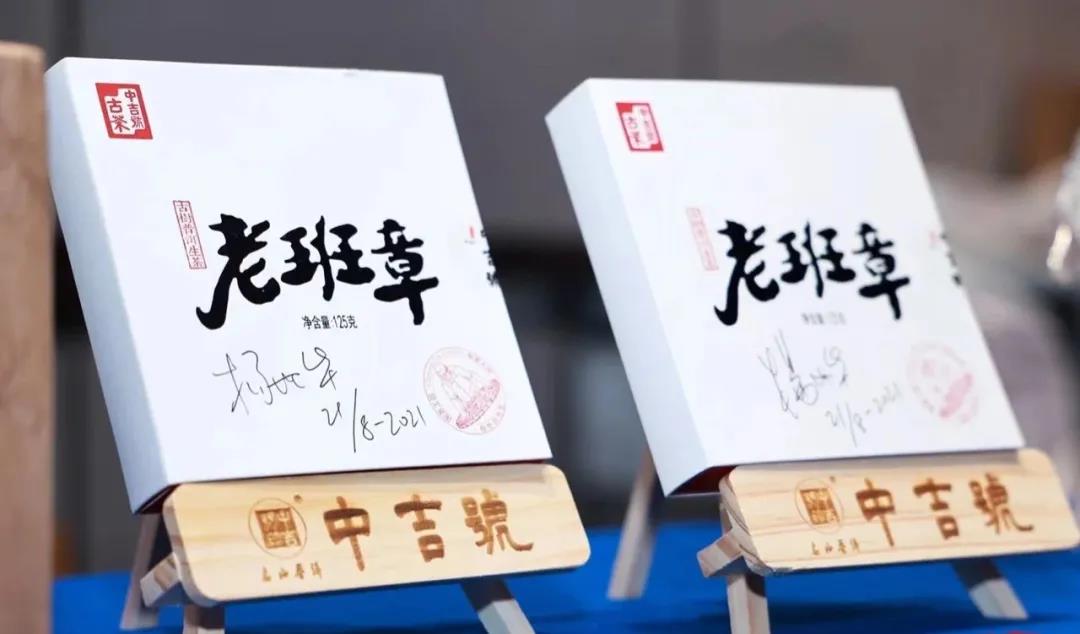 中吉號
古茶
古樹普洱生茶
老班章
净含量:125克
21/8-2021
中吉號
中吉號
古茶
老班章
净含量:125克
21/8-2021
中吉號